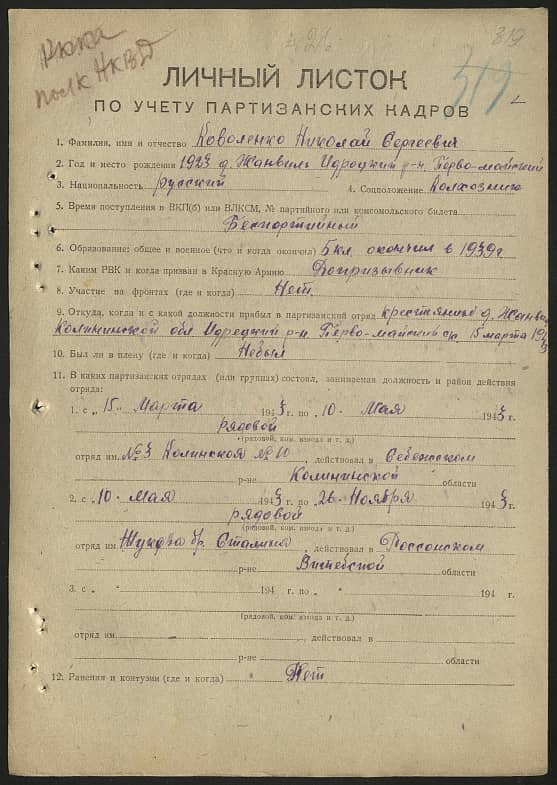 319
319
полк НКВД
ЛИЧНЫЙ ЛИСТОК
ПО УЧЕТУ ПАРТИЗАНСКИХ КАДРОВ
1. Фамилия, имя и отчество Коваленко Николай Сергеевич
2. Год и место рождения 1923 д. Жанвиль Идрецкий р-н. Перво-майский
3. Национальность русский 4. Соцположение Колхозник
5. Время поступления в ВКП(б) или ВЛКСМ, № партийного или комсомольского билета
Беспартийный
6. Образование: общее и военное (что и когда окончил) 5 кл. окончил в 1939 г
7. Каким РВК и когда призван в Красную Армию Допризывник
8. Участие на фронтах (где и когда) Нет.
9. Откуда, когда и с какой должности прибыл в партизанский отряд крестьянин д. Жанв
Калининской обл Идрецкий р-н. Перво-майский с/с 15 марта 1943
10. Был ли в плену (где и когда) Небыл
11. В каких партизанских отрядах (или группах) состоял, занимаемая должность и район действия
отряда:
1. с „ 15 „ Марта 1943 г. по „ 10 „ Мая 1943 г.
рядовой
(рядовой, ком. взвода и т. д.)
отряд им. №3 Калинская №10, действовал в Себежском
р-не Калининской области
2. с „ 10 „ Мая 1943 г. по „ 26 „ Ноября 1943 г.
рядовой
(рядовой, ком. взвода и т. д.)
отряд им Жукова бр. Сталина, действовал в Россонском
р-не Витебской области
3. с „ „ 194 г. по „ „ 194 г.
(рядовой, ком. взвода и т. д.)
отряд им., действовал в
р-не области
12. Ранения и контузии (где и когда) Нет